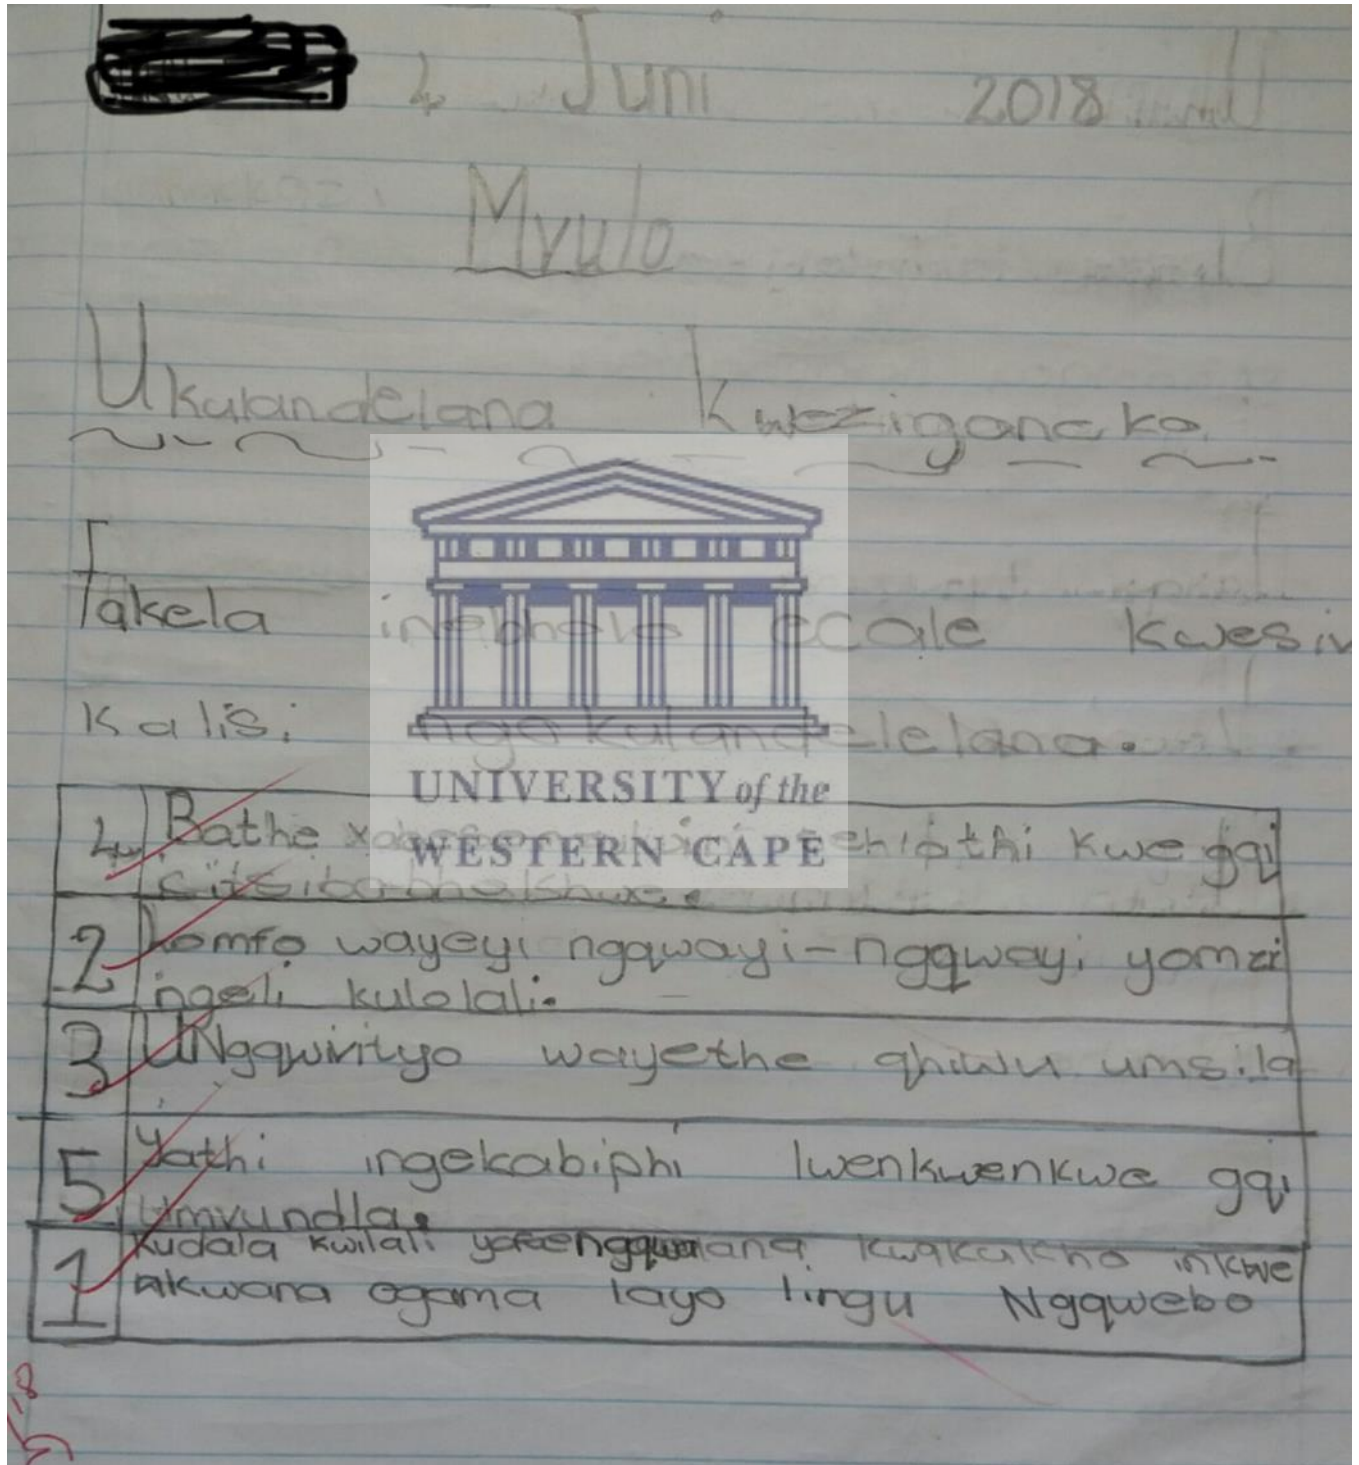 4 Juni 2018
Mvulo
Ukulandelana Kweziganeko
Fakela inebhelo ecale kwesiv
kalisi ngokulandelelana.
UNIVERSITY of the
WESTERN CAPE
4 Bathe kwe gqi
2 komfo wayeyi ngqwayi-ngqwayi yomzi
ngeli kulolali.
3 UNgqwirityo wayethe qhiwu umsila
5 Yathi ingekabiphi lwenkwenkwe gqi
Umvundla.
1 Kudala kwilali kwakukho inkwe
nkwana ogama layo lingu Ngqwebo